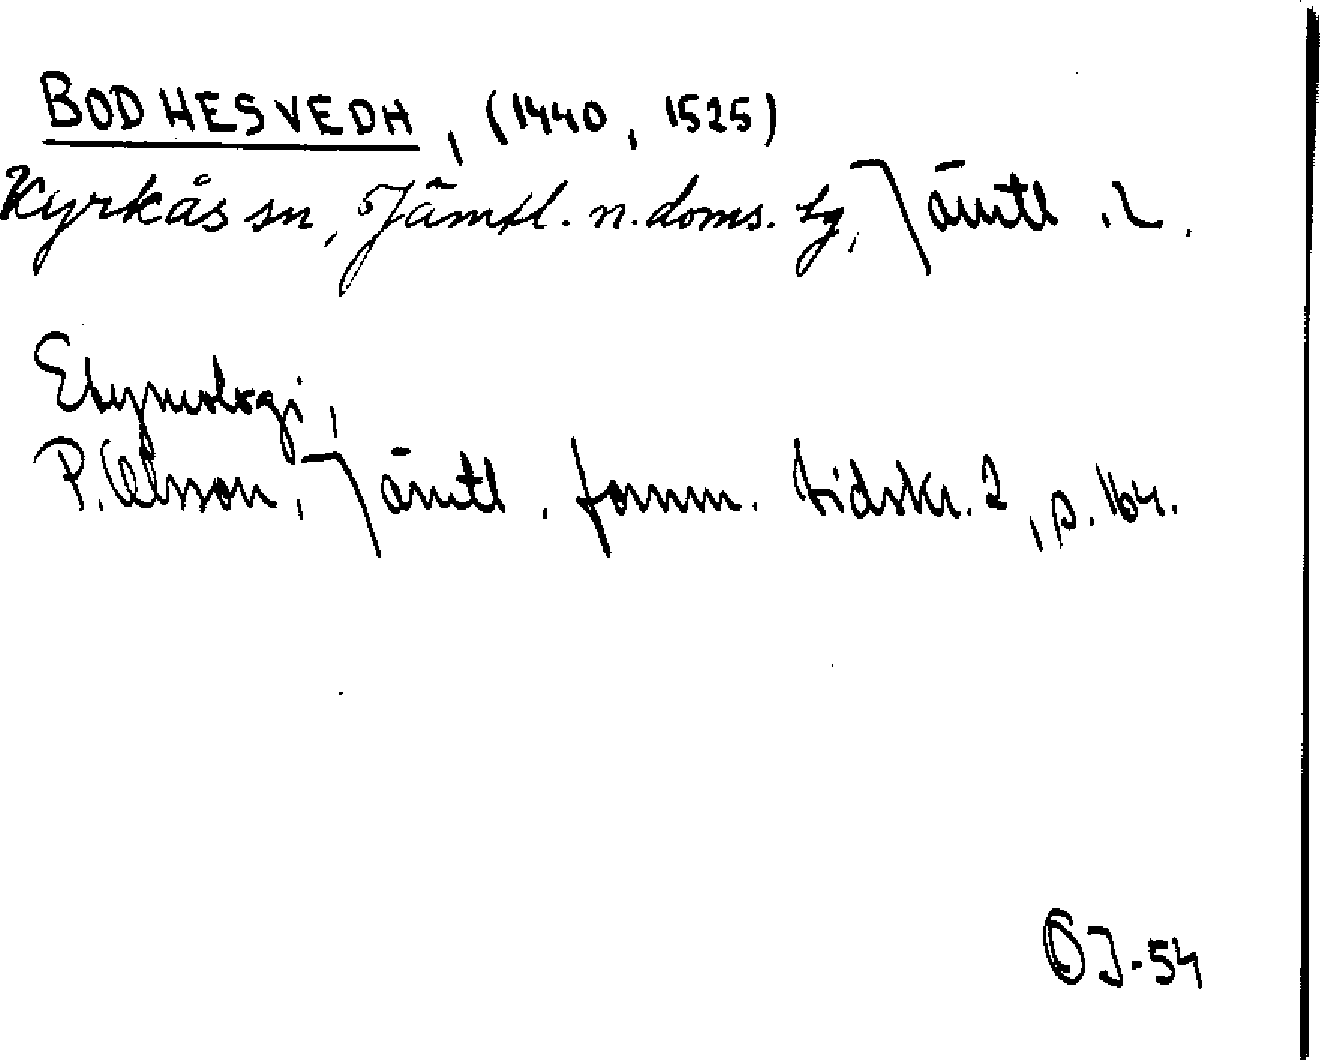 BODHESVEDH, (1440, 1525)
Kyrkås sn, Jämtl. n. doms. tg, Jämtl. L.
Etymologi,
P. Olsson, Jämtl. fornm. tidskr. 2, p. 164.
OJ-54